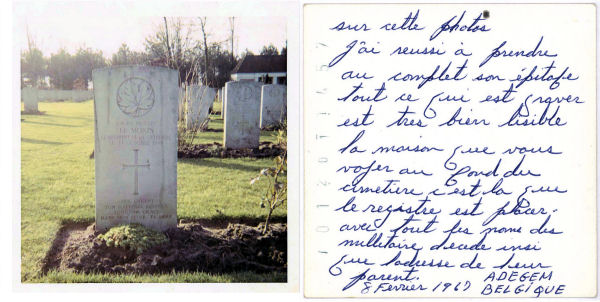 MORIN
sur cette photos
j'ai reussi à prendre
au complet son épitafe
tout ce qui est graver
est très bien lisible
la maison que vous
voyer au fond du
cimetiere c'est la que
le registre est placer.
avec tout les noms des
millitaire décede insi
que ladresse de leur
parent. ADEGEM
8 Fevrier 1967 BELGIQUE